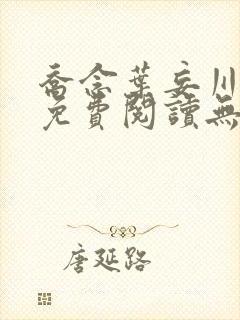 喬念葉妄川
免費閱讀無
唐延路